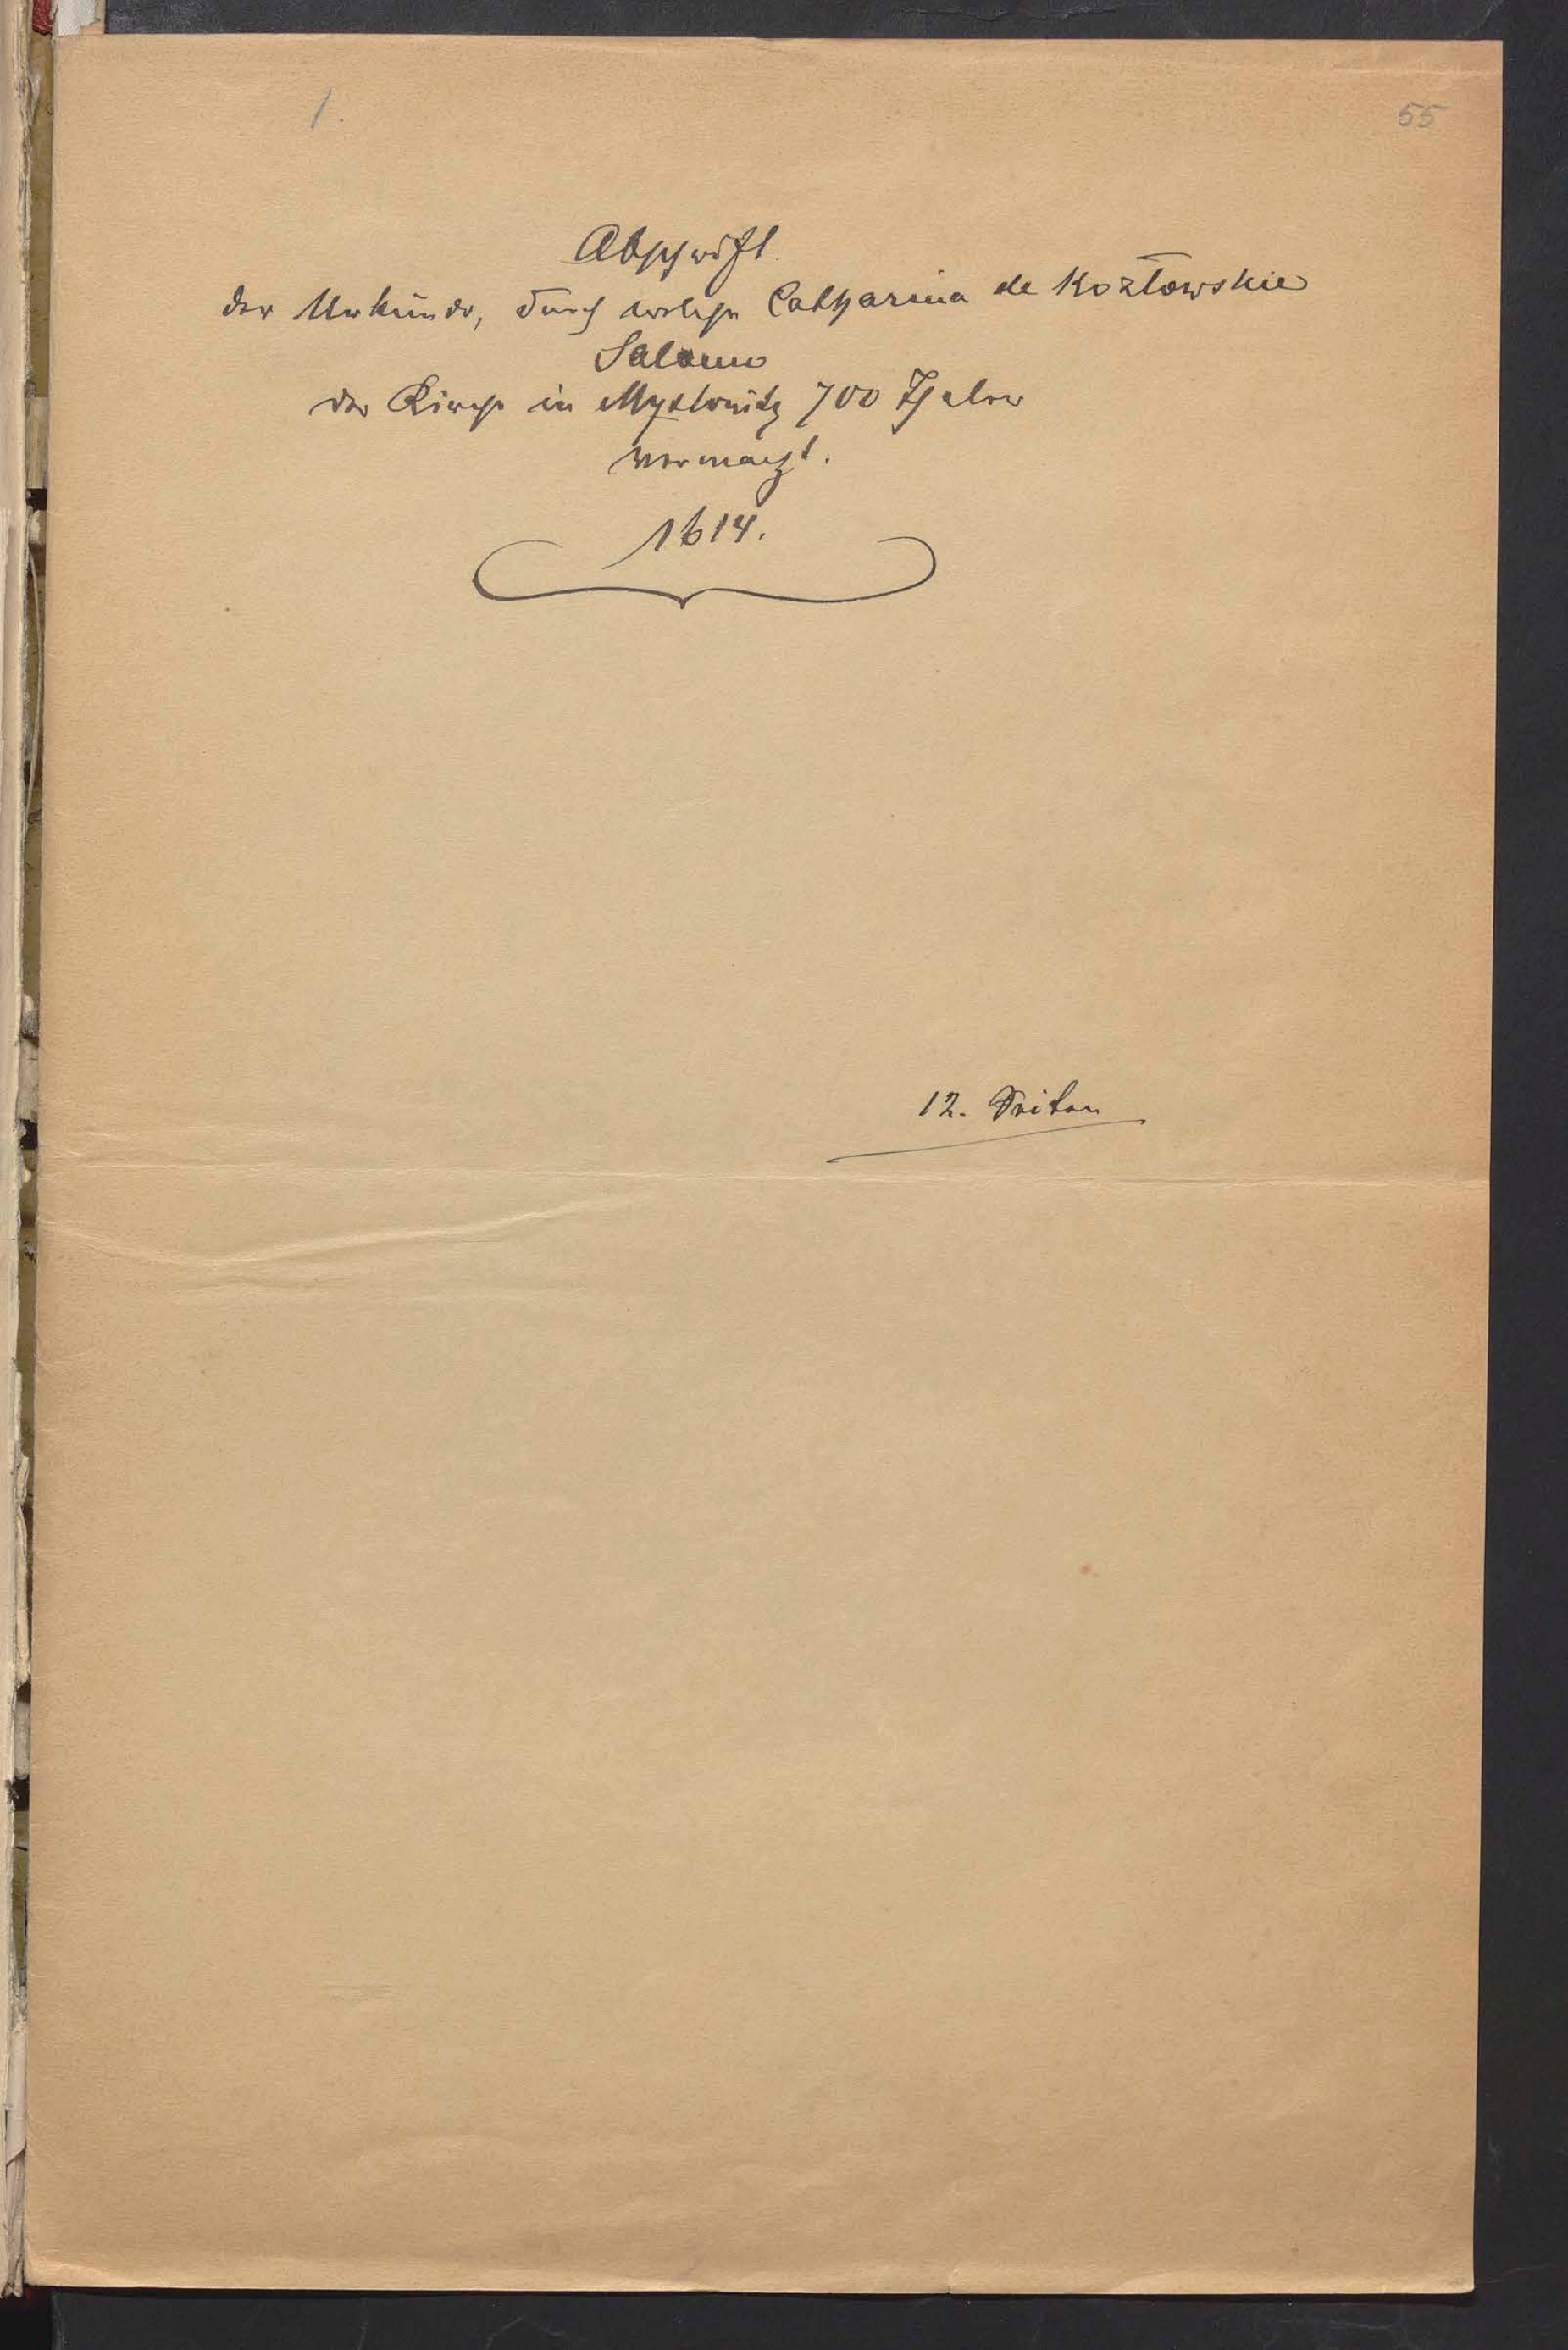 1.
55
Abschrift
der Urkunde, durch welche Catharina de Kozłowskie
Salomo
der Kirche in Myslowitz 700 Thaler
vermacht.
1614.
12. Seiten